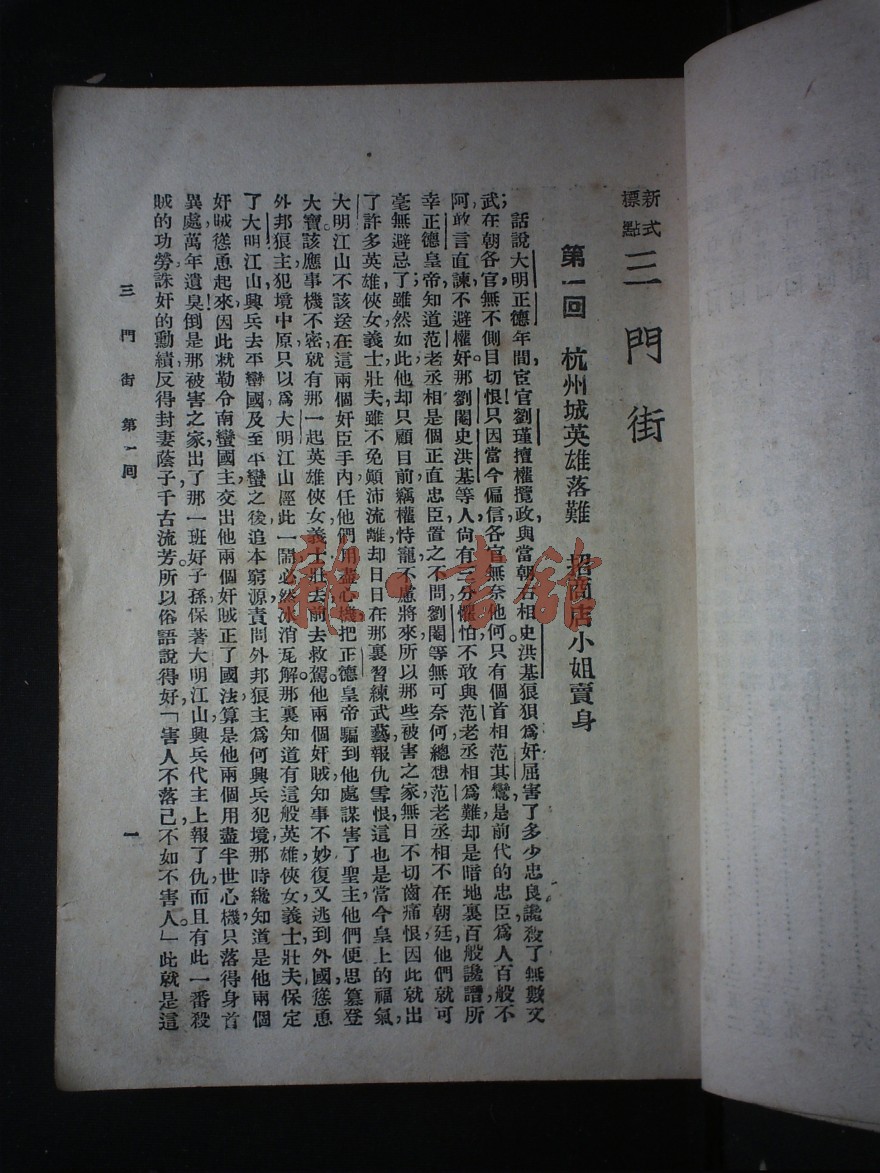 新式標點 三門街
第一回 杭州城英雄落難 招商店小姐賣身
話說大明正德年間，宦官劉瑾擅權攬政，與當朝右相史洪基狼狽爲奸，屈害了多少忠良，讒殺了無數文
武；在朝各官無不側目切恨！只因當今偏信，各官無奈他何。只有個首相范其鸞，是前代的忠臣，爲人百般不
阿，敢言直諫，不避權奸。那劉閹史洪基等人，尙有三分懼怕，不敢與范老丞相爲難，却是暗地裏百般讒譖。所
幸正德皇帝知道范老丞相是個正直忠臣，置之不問。劉閹等無可奈何，總想范老丞相不在朝廷，他們就可
毫無避忌了。雖然如此，他却只顧目前竊權恃寵，不慮將來，所以那些被害之家，無日不切齒痛恨，因此就出
了許多英雄俠女，義士壯夫，雖不免顚沛流離，却日日在那裏習練武藝，報仇雪恨，這也是當今皇上的福氣，
大明江山不該送在這兩個奸臣手內，任他們用盡心機，把正德皇帝騙到他處，謀害了聖主，他們便思篡登
大寶。該應事機不密，就有那一起英雄俠女，義士壯去前去救駕。他兩個奸賊知事不妙，復又逃到外國，慫恿
外邦狼主犯境中原，只以爲大明江山，經此一鬧，必然冰消瓦解。那裏知道有這般英雄俠女，義士壯夫，保定
了大明江山，興兵去平蠻國，及至平蠻之後，追本窮源，責問外邦狼主爲何興兵犯境，那時纔知道是他兩個
奸賊慫恿起來，因此就勒令南蠻國主交出他兩個奸賊，正了國法，算是他兩個用盡半世心機，只落得身首
異處，萬年遺臭！倒是那被害之家，出了那一班好子孫，保著大明江山，興兵代主上報了仇，而且有此一番殺
賊的功勞，誅奸的勳績，反得封妻蔭子，千古流芳。所以俗語說得好：「害人不落己，不如不害人。」此就是這
三門街 第一回 一
雜·書館